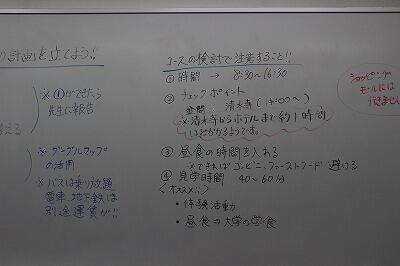 の計画を立てよう!!
※①ができたら
先生に報告
える
※グーグルマップ
の活用
※バスは乗り放題
電車、地下鉄は
別途運賃が!!
コースの検討で注意すること!!
①時間 → 8:30〜16:30
②チェックポイント
金閣・清水寺(14:00〜)
※清水寺からホテルまで約1時間
ほどかかるようです。
③昼食の時間を入れる
※できればコンビニ、ファーストフード 避ける
④見学時間 40〜60分
〈オススメ!!〉
・体験活動
・昼食⇒大学の学食
ショッピング
モールには
行きません